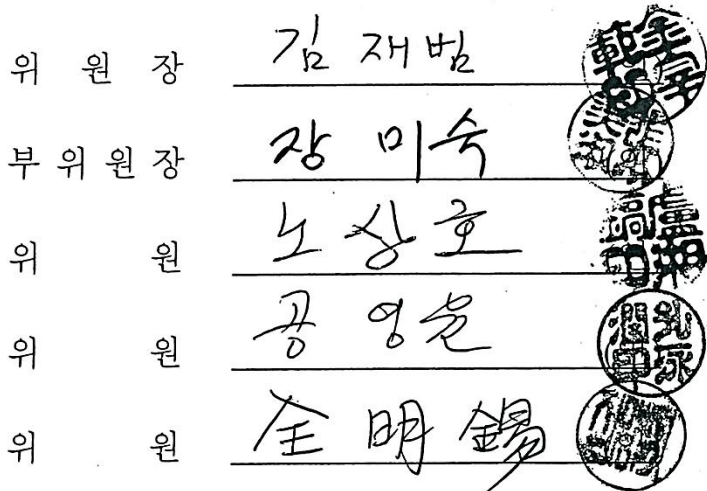 위 원 장 김 재 범
부 위 원 장 장 미 숙
위 원 노 상 호
위 원 공 영
위 원 全 明 錫